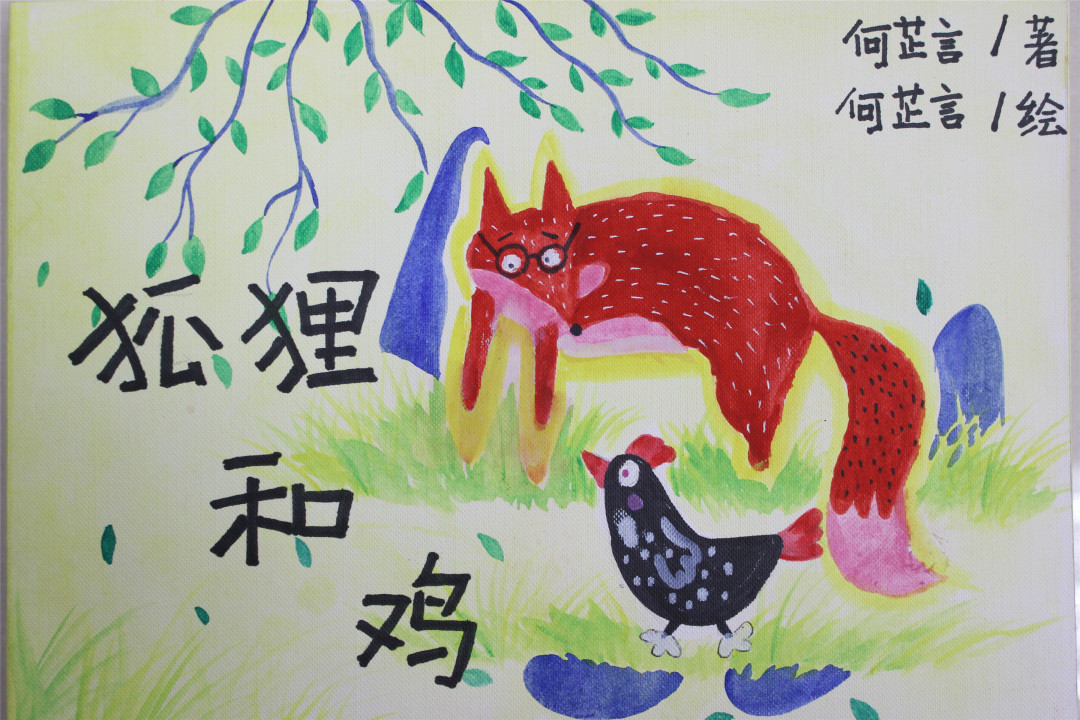 何芷言/著
何芷言/绘
狐狸
和
鸡